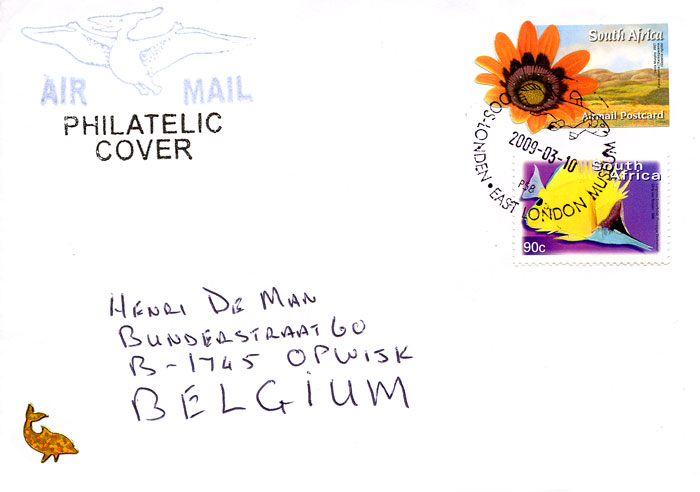 AIR MAIL
PHILATELIC
COVER
South Africa
Airmail Postcard
OOS-LONDEN • EAST LONDON MUSEUM
2009-03-10
PS8
South
Africa
90c
HENRI DE MAN
BUNDERSTRAAT 60
B-1745 OPWIJK
BELGIUM